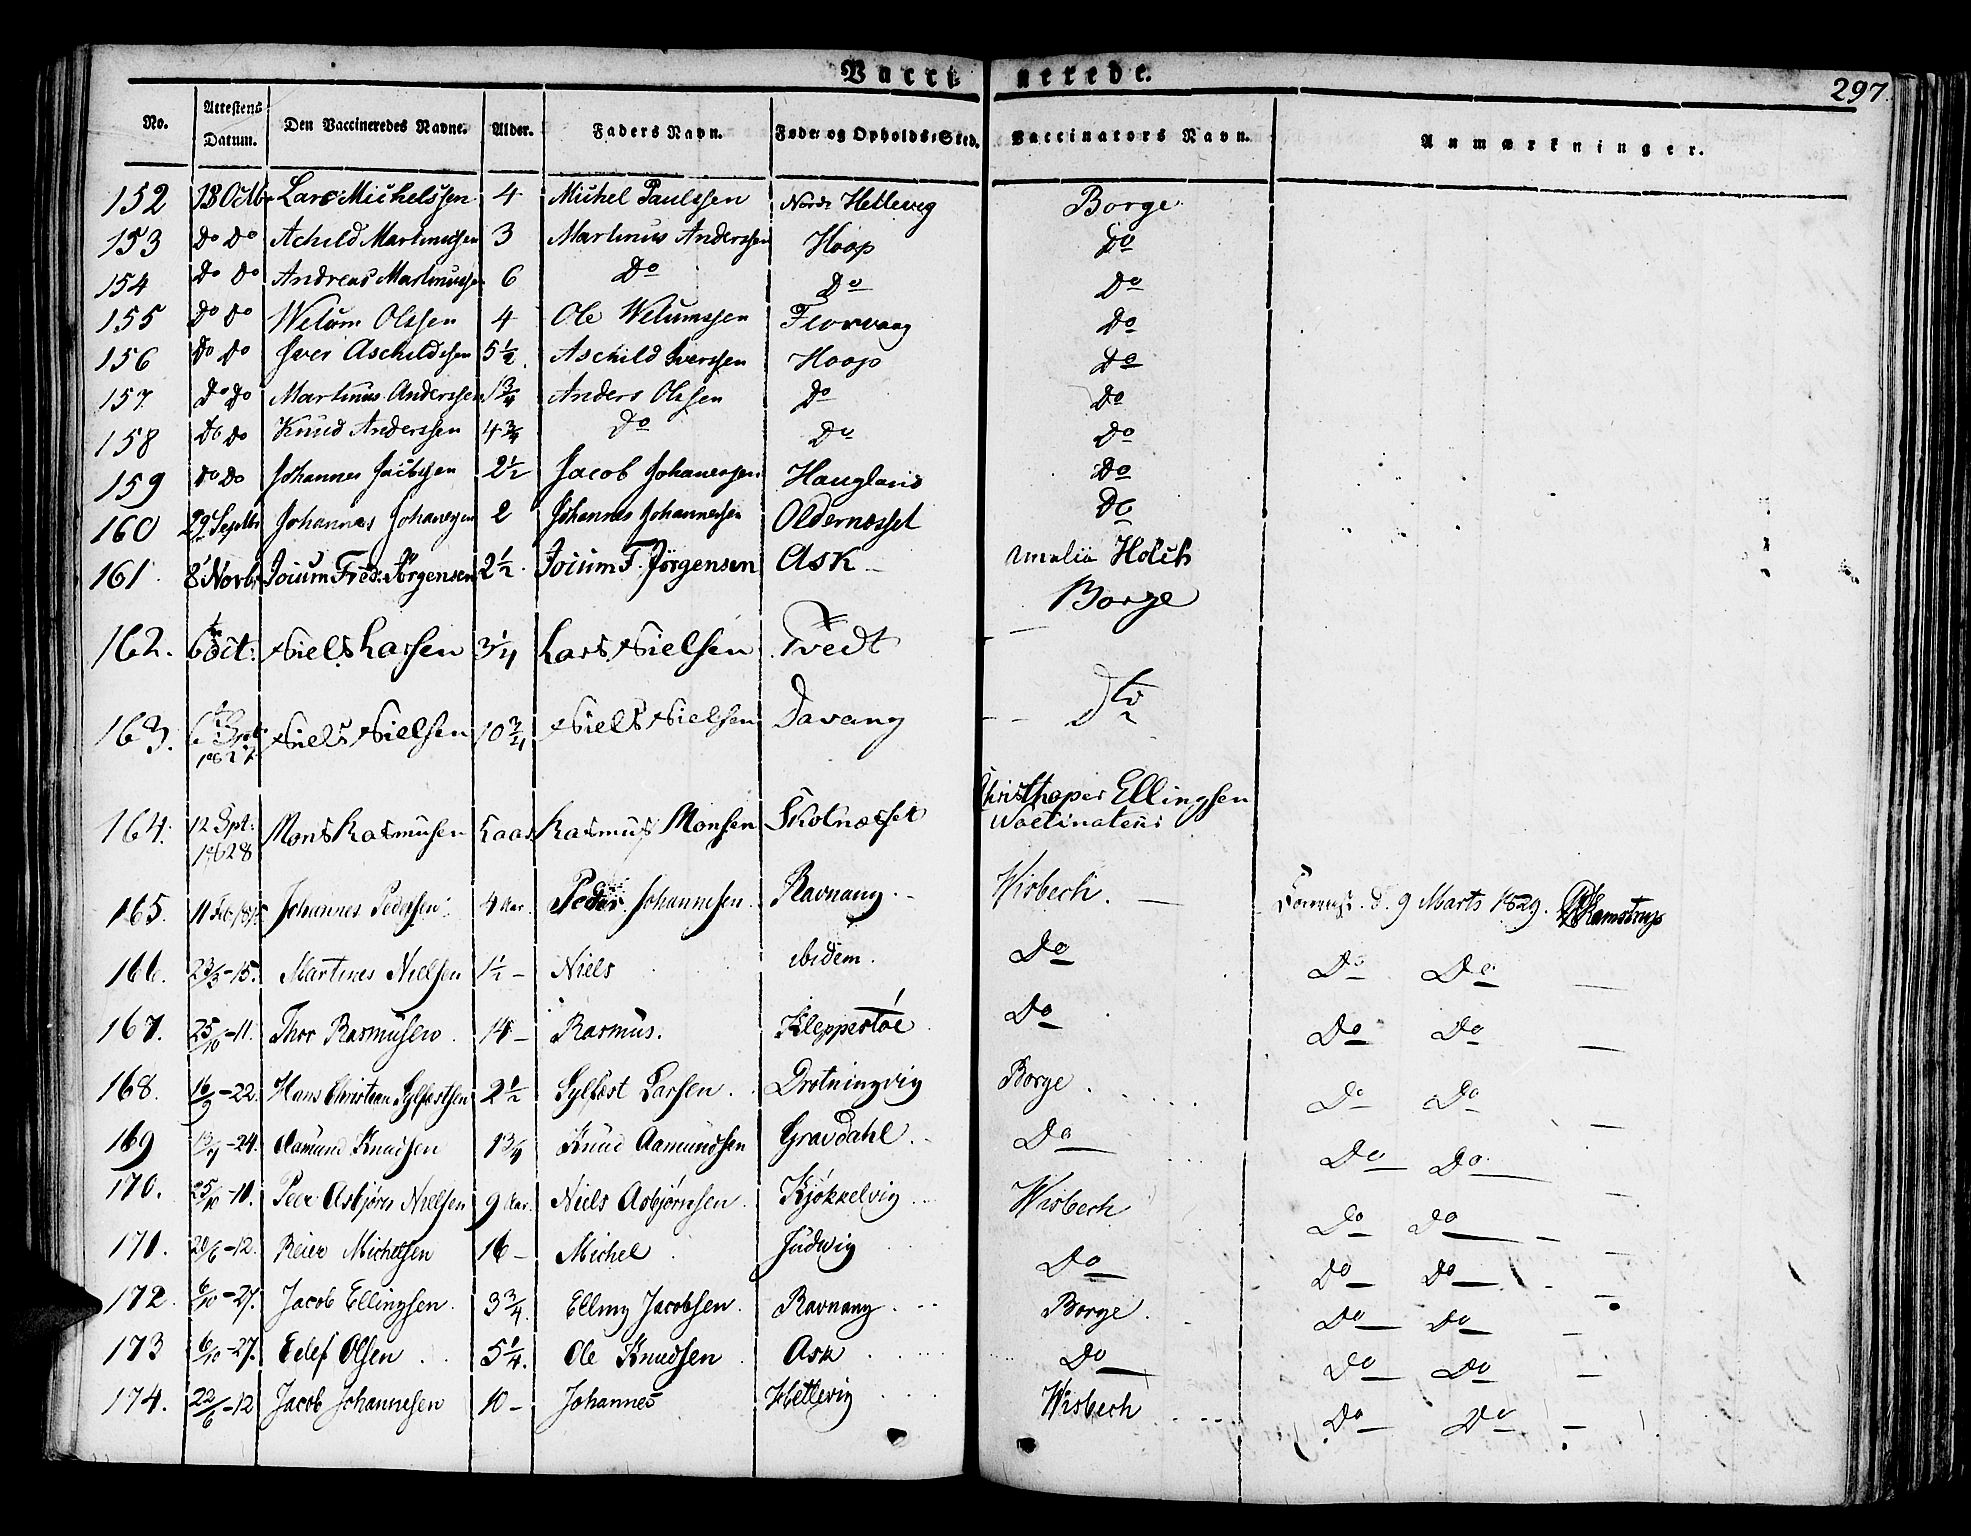 Vaccinerede.
297.
No. Attestens Datum. Den Vaccineredes Navne. Alder. Faders Navn. Føde- og Opholds-Sted. Vaccinators Navn. Anmærkninger.
152 18 Octbr Lars Michelssen 4 Michel Paulssen Nordr Hetleveg Borge
153 Do Do Achild Martinussen 3 Martinus Anderssen Hoop Do
154 Do Do Andreas Martinussen 6 Do Do Do
155 Do Do Welum Olssen 4 Ole Welumssen Florvaag Do
156 Do Do Iver Aschildssen 5½ Aschild Iverssen Hoop Do
157 Do Do Martinus Anderssen 1¾ Anders Olssen Do Do
158 Do Do Knud Anderssen 4¾ Do Do Do
159 Do Do Johannes Jacobssen 2½ Jacob Johannessen Haugland Do
160 29 Septbr Johannes Johannessen 2 Johannes Johannessen Oldernæsset Do
161. 8 Novbr Joium Fred: Jörgensen 2½. Joium F. Jörgensen Ask Amalia Holck
162. 6te Oct: Niels Larsen 3¼ Lars Nielsen Tvedt Borge
163. 1827 Niels Nielsen 10¾ Niels Nielsen Davang Dto
164. 12 Spt: 1828 Mons Rasmusen Rasmus Monsen Skolnæsset Christhoper Ellingsen
165. 11 Johannes Pedersen 4 Aar. Peder Johannesen Ravnang. Wisbech. d. 9 Marts 1829. Kamstrup
166. 23/3-15. Martines Nielsen 1½ - Niels ibidem. Do Do Do
167. 25/10-11. Thor Rasmusen 14 - Rasmus. Kleppestöe Do Do Do
168. 16/9-22. Hans Christian Sylfæstsen 2½ Sylfæst Larsen. Drotningvig Borge Do Do
169 13/9-24. Aamund Knudsen 1¾ Knud Aamundsen Gravdahl. Do Do Do
170. 25/10-11. Peder Asbjörn Nielsen 9 Aar. Niels Asbjörnsen. Kjøkkelvig Wisbech Do Do
171. 20/6-12. Reier Michelsen 16 - Michel Judwig Do Do Do
172. 6/10-27. Jacob Ellingsen. 3¾. Elling Jacobsen. Ravnang Borge. Do Do
173 6/10-27. Edef Olsen 5¼. Ole Knudsen Ask Do Do Do
174. 22/6-12 Jacob Johannesen 10 - Johannes Hetlevig Wisbech Do Do